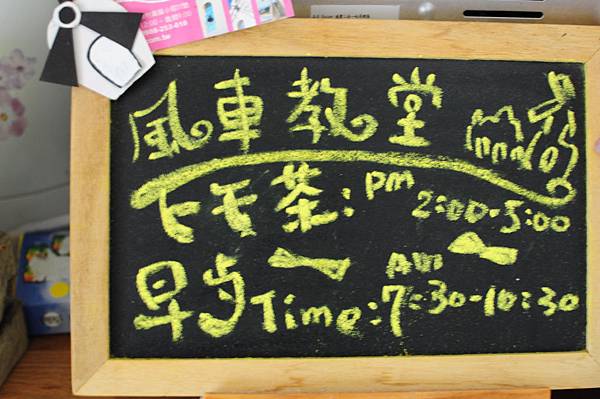 風車教堂
下午茶: pm 2:00-5:00
早点Time: Am 7:30-10:30